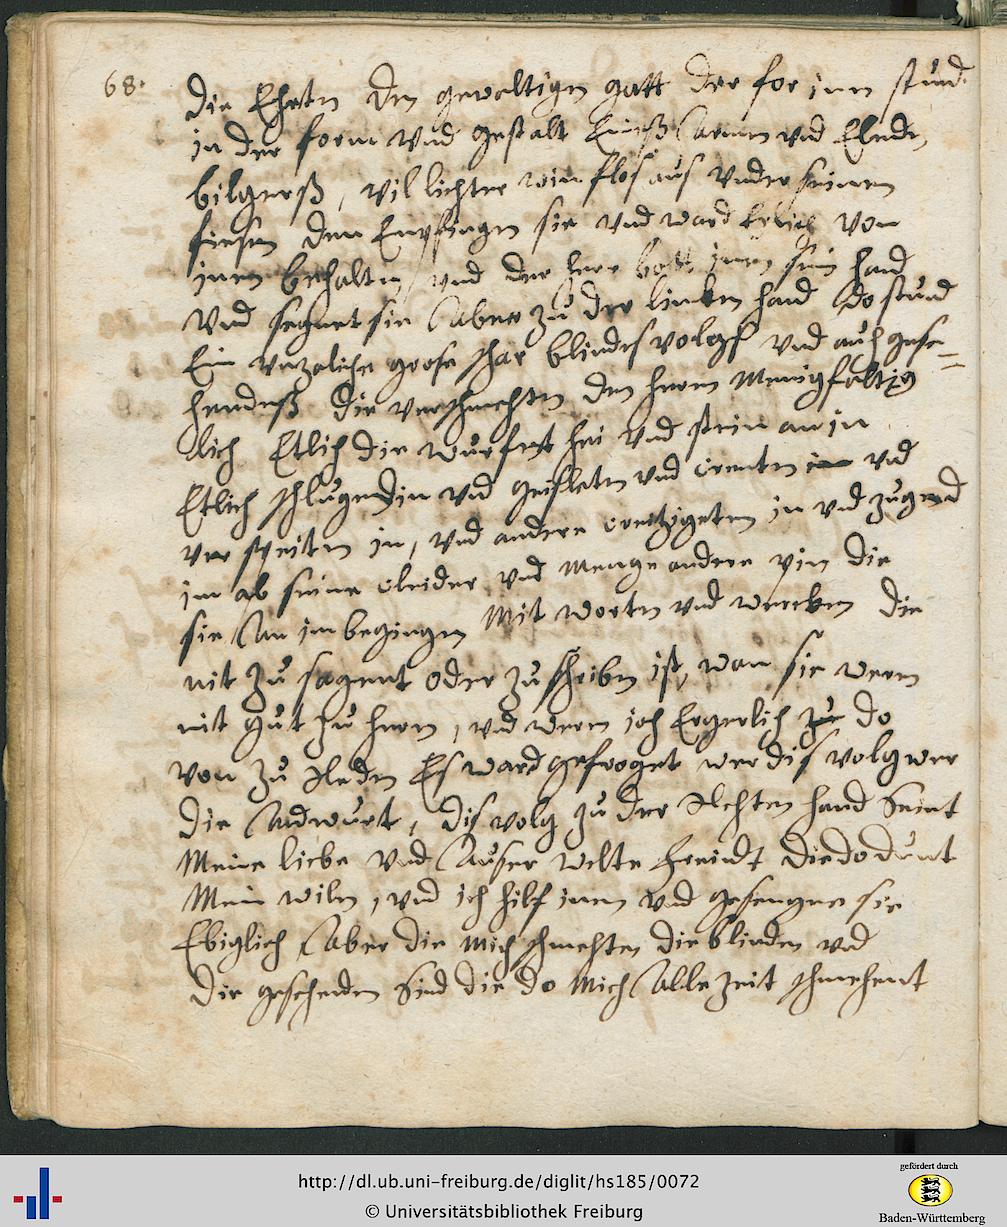 68.
die Ehrtn den gewaltigen gott der for inen stund.
in der form vnd gestalt Eineß armen vnd Elenden
bilgerß, vil lichter win flos aus vnder seinen
fiesen den Empfingen sie vnd ward von
inen behalten, vnd der herr bott inen sein hand
vnd segnet sie aber zů der lincken hand do stůnd
Ein vnzaliche grose schar blindes volcks vnd auch gese=
hendeß die verschmechten den herrn Menigfaltig
lich Etlich die wurfent vnd stein an in
Etlich schlůgend in vnd geisleten vnd vnd
ver speiten in, vnd andere creitzgeten in vnd zugend
im ab seine cleider, vnd Menge andere pin die
sie an im begingen Mit worten vnd wercken die
nit zů sagent oder zů schriben ist, wan sie wern
nit gůt zů hern, vnd wern ioch Ergerlich do
von zů Reden Es ward gefroget wer dis volg wer
die Andwůrt, dis volg zů der Rechten hand Seint
Meine liebe vnd Auser welte freindt die do důnt
Mein wiln, vnd ich hilf inen vnd gesengne sie
Ebiglich aber die mich schmehten die blinden vnd
die gesehenden Sind die do Mich Alle zeit schmehent
http://dl.ub.uni-freiburg.de/diglit/hs185/0072
© Universitätsbibliothek Freiburg
gefördert durch
Baden-Württemberg